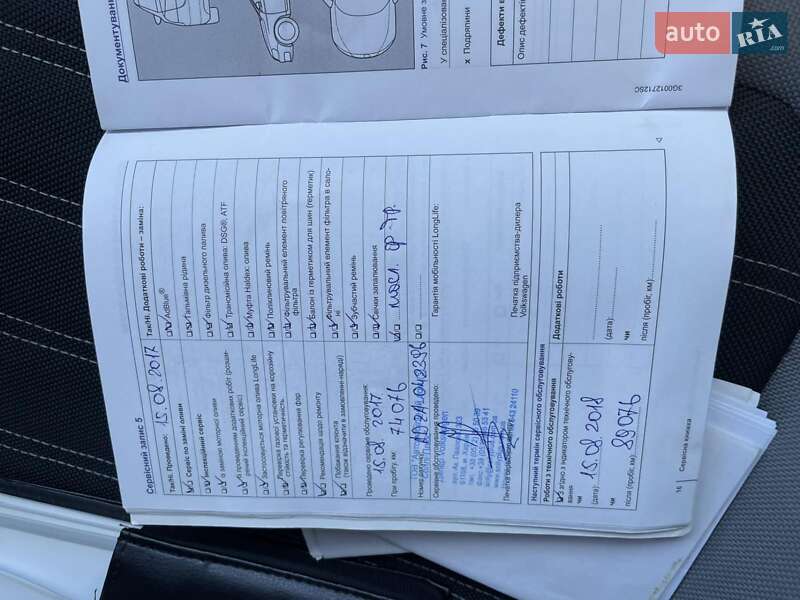 Сервісний запис 5
Так/Ні. проведено: 15.08.2017
Сервіс по заміні оливи
Інспекційний сервіс
з заміною моторної оливи
з проведенням додаткових робіт (розширений інспекційний сервіс)
Використовується моторна олива LongLife
Перевірка газової установки на корозійну стійкість та герметичність
Перевірка регулювання фар
Рекомендація щодо ремонту
Побажання клієнта
(також відзначити в замовленні-наряді)
Проведено сервісне обслуговування:
15.08.2017
При пробігу, км: 74076
Сервісне обслуговування проведено:
Так/Ні. Додаткові роботи – заміна:
AdBlue®
Гальмівна рідина
Фільтр дизельного палива
Трансмісійна олива: DSG®, ATF
Муфта Haldex: олива
Поліклиновий ремінь
Фільтрувальний елемент повітряного фільтра
Балон із герметиком для шин (герметик)
Фільтрувальний елемент фільтра в салоні
Зубчастий ремінь
Свічки запалювання
масл. ф-тр.
Гарантія мобільності LongLife:
Печатка підприємства-дилера
Volkswagen
Наступний термін сервісного обслуговування
Роботи з технічного обслуговування
згідно з індикатором технічного обслуговування
чи
(дата): 15.08.2018
чи
після (пробіг, км): 89076
Додаткові роботи
(дата):
чи
після (пробіг, км):
16
Сервісна книжка
Рис. 7
x Подряпини
3G0012712SC
auto RIA.com